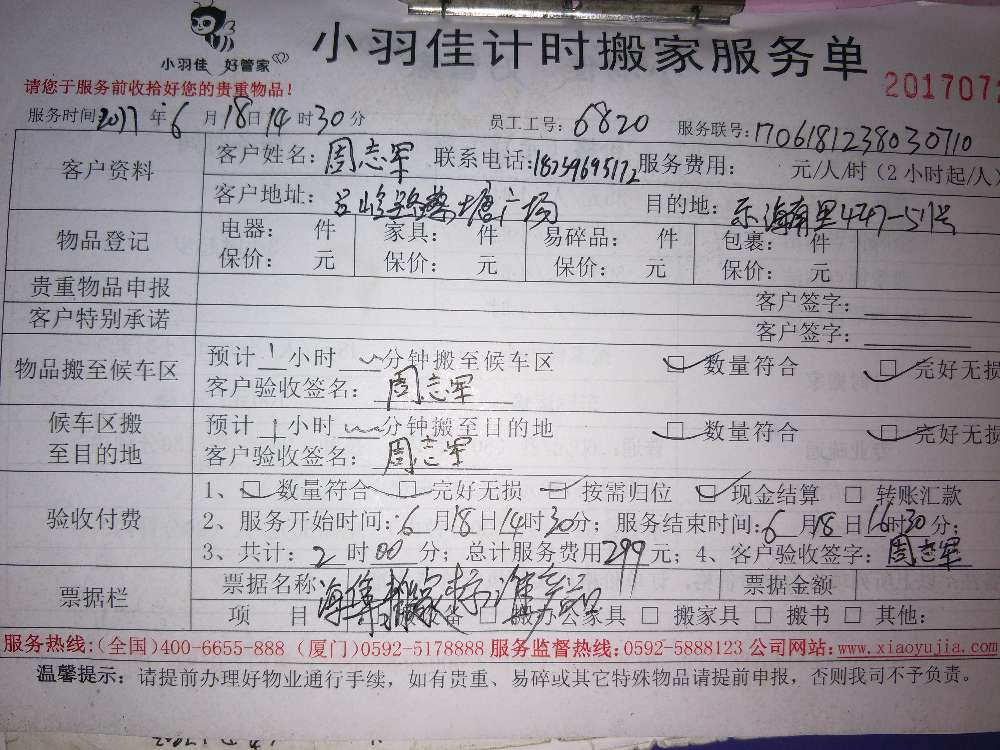 小羽佳 好管家
小羽佳计时搬家服务单
请您于服务前收拾好您的贵重物品！
2017072
服务时间2017年6月18日14时30分 员工工号：6820 服务联号：1706181238030710
客户资料 客户姓名：周志军 联系电话：18259695172 服务费用： 元/人/时（2小时起/人）
客户地址： 塘广场 目的地：东海南里 号
物品登记 电器： 件 家具： 件 易碎品： 件 包裹： 件
保价： 元 保价： 元 保价： 元 保价： 元
贵重物品申报 客户签字：
客户特别承诺 客户签字：
物品搬至候车区 预计1小时 分钟搬至候车区 数量符合 完好无损
客户验收签名：周志军
候车区搬至目的地 预计1小时 分钟搬至目的地 数量符合 完好无损
客户验收签名：周志军
验收付费 1、数量符合 完好无损 按需归位 现金结算 转账汇款
2、服务开始时间：6月18日14时30分；服务结束时间：6月18日16时30分；
3、共计：2时00分；总计服务费用299元；4、客户验收签字：周志军
票据栏 票据名称 票据金额
项 目 备 搬办公家具 搬家具 搬书 其他：
服务热线：(全国)400-6655-888 (厦门)0592-5178888 服务监督热线：0592-5888123 公司网站：www.xiaoyujia.com
温馨提示：请提前办理好物业通行手续，如有贵重、易碎或其它特殊物品请提前申报，否则我司不予负责。